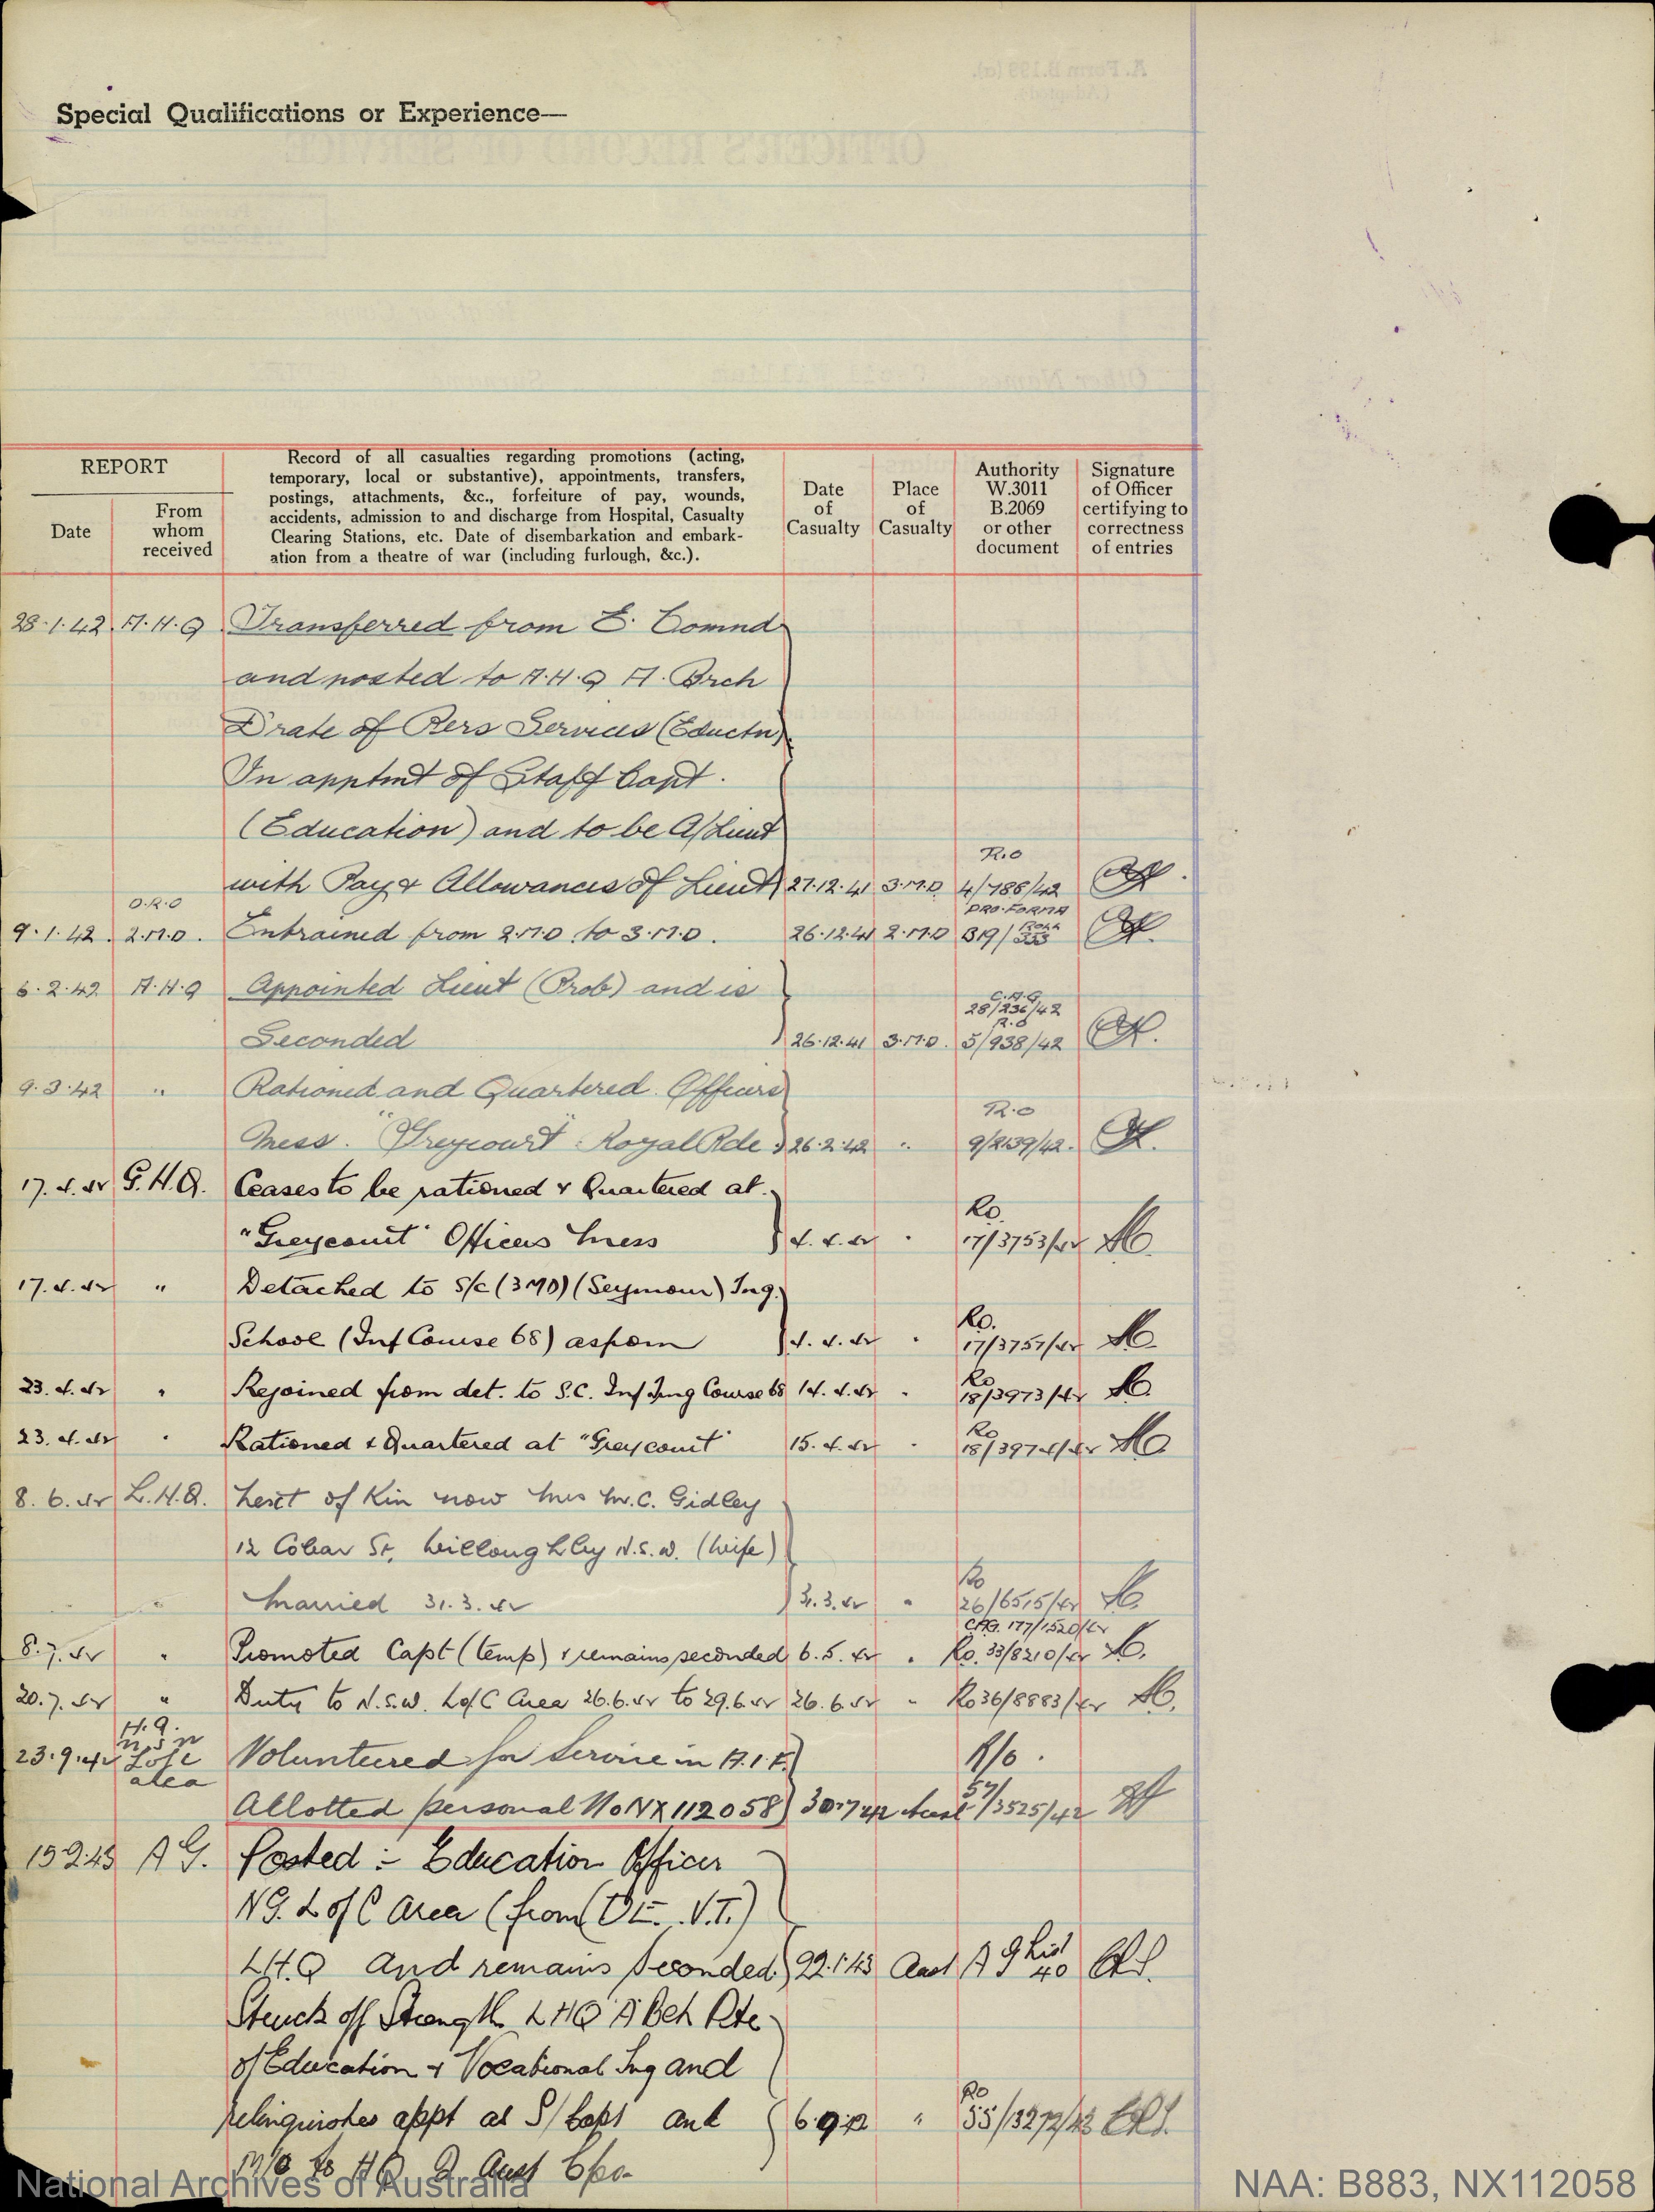 Special Qualifications or Experience—
REPORT
Date
From whom received
Record of all casualties regarding promotions (acting,
temporary, local or substantive), appointments, transfers,
postings, attachments, &c., forfeiture of pay, wounds,
accidents, admission to and discharge from Hospital, Casualty
Clearing Stations, etc. Date of disembarkation and embark-
ation from a theatre of war (including furlough, &c.).
Date of Casualty
Place of Casualty
Authority W.3011 B.2069 or other document
Signature of Officer certifying to correctness of entries
28.1.42 A.H.Q Transferred from E. Comnd
and posted to A.H.Q A. Brch
Drate of Pers Services (Eductn)
In apptmt of Staff Capt.
(Education) and to be A/Lieut
R.O
with Pay & Allowances of Lieut 27.12.41 3.M.D 4/786/42
O.R.O PRO-FORMA
9.1.42. 2.M.D. Entrained from 2.M.D. to 3.M.D. 26.12.41 2.M.D 319/333
6.2.42 A.H.Q Appointed Lieut (Prob) and is
C.A.G 28/236/42
R.O
Seconded 26.12.41 3.M.D. 5/938/42
9.3.42 " Rationed and Quartered Officers
R.O
Mess. "Greycourt" Royal Pde 26.2.42 " 9/2139/42.
17.4.42 G.H.Q. Ceases to be rationed & Quartered at
Ro.
"Greycourt" Officers Mess 4.4.42 " 17/3753/42
17.4.42 " Detached to S/C (3MD) (Seymour) Tng.
Ro.
School (Inf Course 68) as from 4.4.42 " 17/3757/42
Ro
23.4.42 " Rejoined from det. to S.C. Inf Tng Course 68 14.4.42 " 18/3973/42
Ro
23.4.42 " Rationed & Quartered at "Greycourt" 15.4.42 " 18/3974/42
8.6.42 L.H.Q. Next of Kin now Mrs M.C. Gidley
12 Cobar St, Willoughby N.S.W. (Wife)
Ro
" Married 31.3.42 31.3.42 " 26/6515/42
CAG. 177/1520/42
8.7.42 " Promoted Capt (temp) & remains seconded 6.5.42 " Ro. 33/8210/42
20.7.42 " Duty to N.S.W. LofC Area 26.6.42 to 29.6.42 26.6.42 " Ro 36/8883/42
H.Q.
N.S.W
23.9.42 LofC area Volunteered for Service in A.I.F. R/O.
Allotted personal No NX112058 30.7.42 Aust 57/3525/42
15.2.43 A G. Posted :- Education Officer
N G. L of C Area (from (D E. V.T.)
LHQ and remains seconded 22.1.43 Aust A G List 40
Struck off Strength LHQ A Bch Dte
of Education & Vocational Tng and
Ro
relinquishes appt as S/Capt and 6.9.42 " 55/13272/42
M/O to HQ 2 Aust Cps
National Archives of Australia
NAA: B883, NX112058